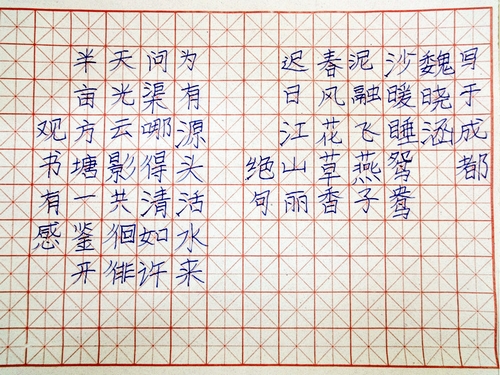 观书有感
半亩方塘一鉴开
天光云影共徊徘
问渠哪得清如许
为有源头活水来
绝句
迟日江山丽
春风花草香
泥融飞燕子
沙暖睡鸳鸯
魏晓涵
写于成都